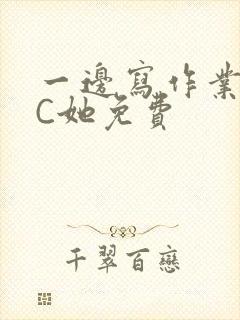 一邊寫作業
C她免費
千翠百戀